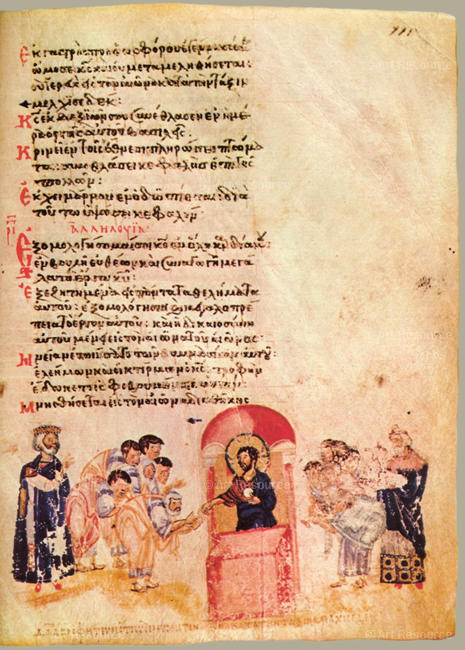 Ἐκ γαστρὸς πρὸ ἑωσφόρου ἐγέννησά σε
ὤμοσεν κς καὶ οὐ μεταμεληθήσεται:
σὺ ἱερεὺς εἰς τὸν αἰῶνα κατὰ τὴν τάξιν
μελχισεδέκ:
Κς ἐκ δεξιῶν σου συνέθλασεν ἐν ἡμέ
ρᾳ ὀργῆς αὐτοῦ βασιλεῖς
Κρινεῖ ἐν τοῖς ἔθνεσι πληρώσει πτώμα
τα: συνθλάσει κεφαλὰς ἐπὶ γῆς
πολλῶν:
Ἐκ χειμάρρου ἐν ὁδῷ πίεται: διὰ
τοῦτο ὑψώσει κεφαλήν
ἀλληλούϊα
Ἐξομολογήσομαί σοι κε ἐν ὅλῃ καρδίᾳ μου:
ἐν βουλῇ εὐθέων καὶ συναγωγῇ μεγά
λα τὰ ἔργα κυ:
Ἐξεζητημένα εἰς πάντα τὰ θελήματα
αὐτοῦ: ἐξομολόγησις καὶ μεγαλοπρέ
πεια τὸ ἔργον αὐτοῦ: καὶ ἡ δικαιοσύνη
αὐτοῦ μένει εἰς τὸν αἰῶνα τοῦ αἰῶνος:
Μνείαν ἐποιήσατο τῶν θαυμασίων αὐτοῦ:
ἐλεήμων καὶ οἰκτίρμων ὁ κς: τροφὴν
ἔδωκε τοῖς φοβουμένοις αὐτόν:
Μνησθήσεται εἰς τὸν αἰῶνα διαθήκης
© Art Resource